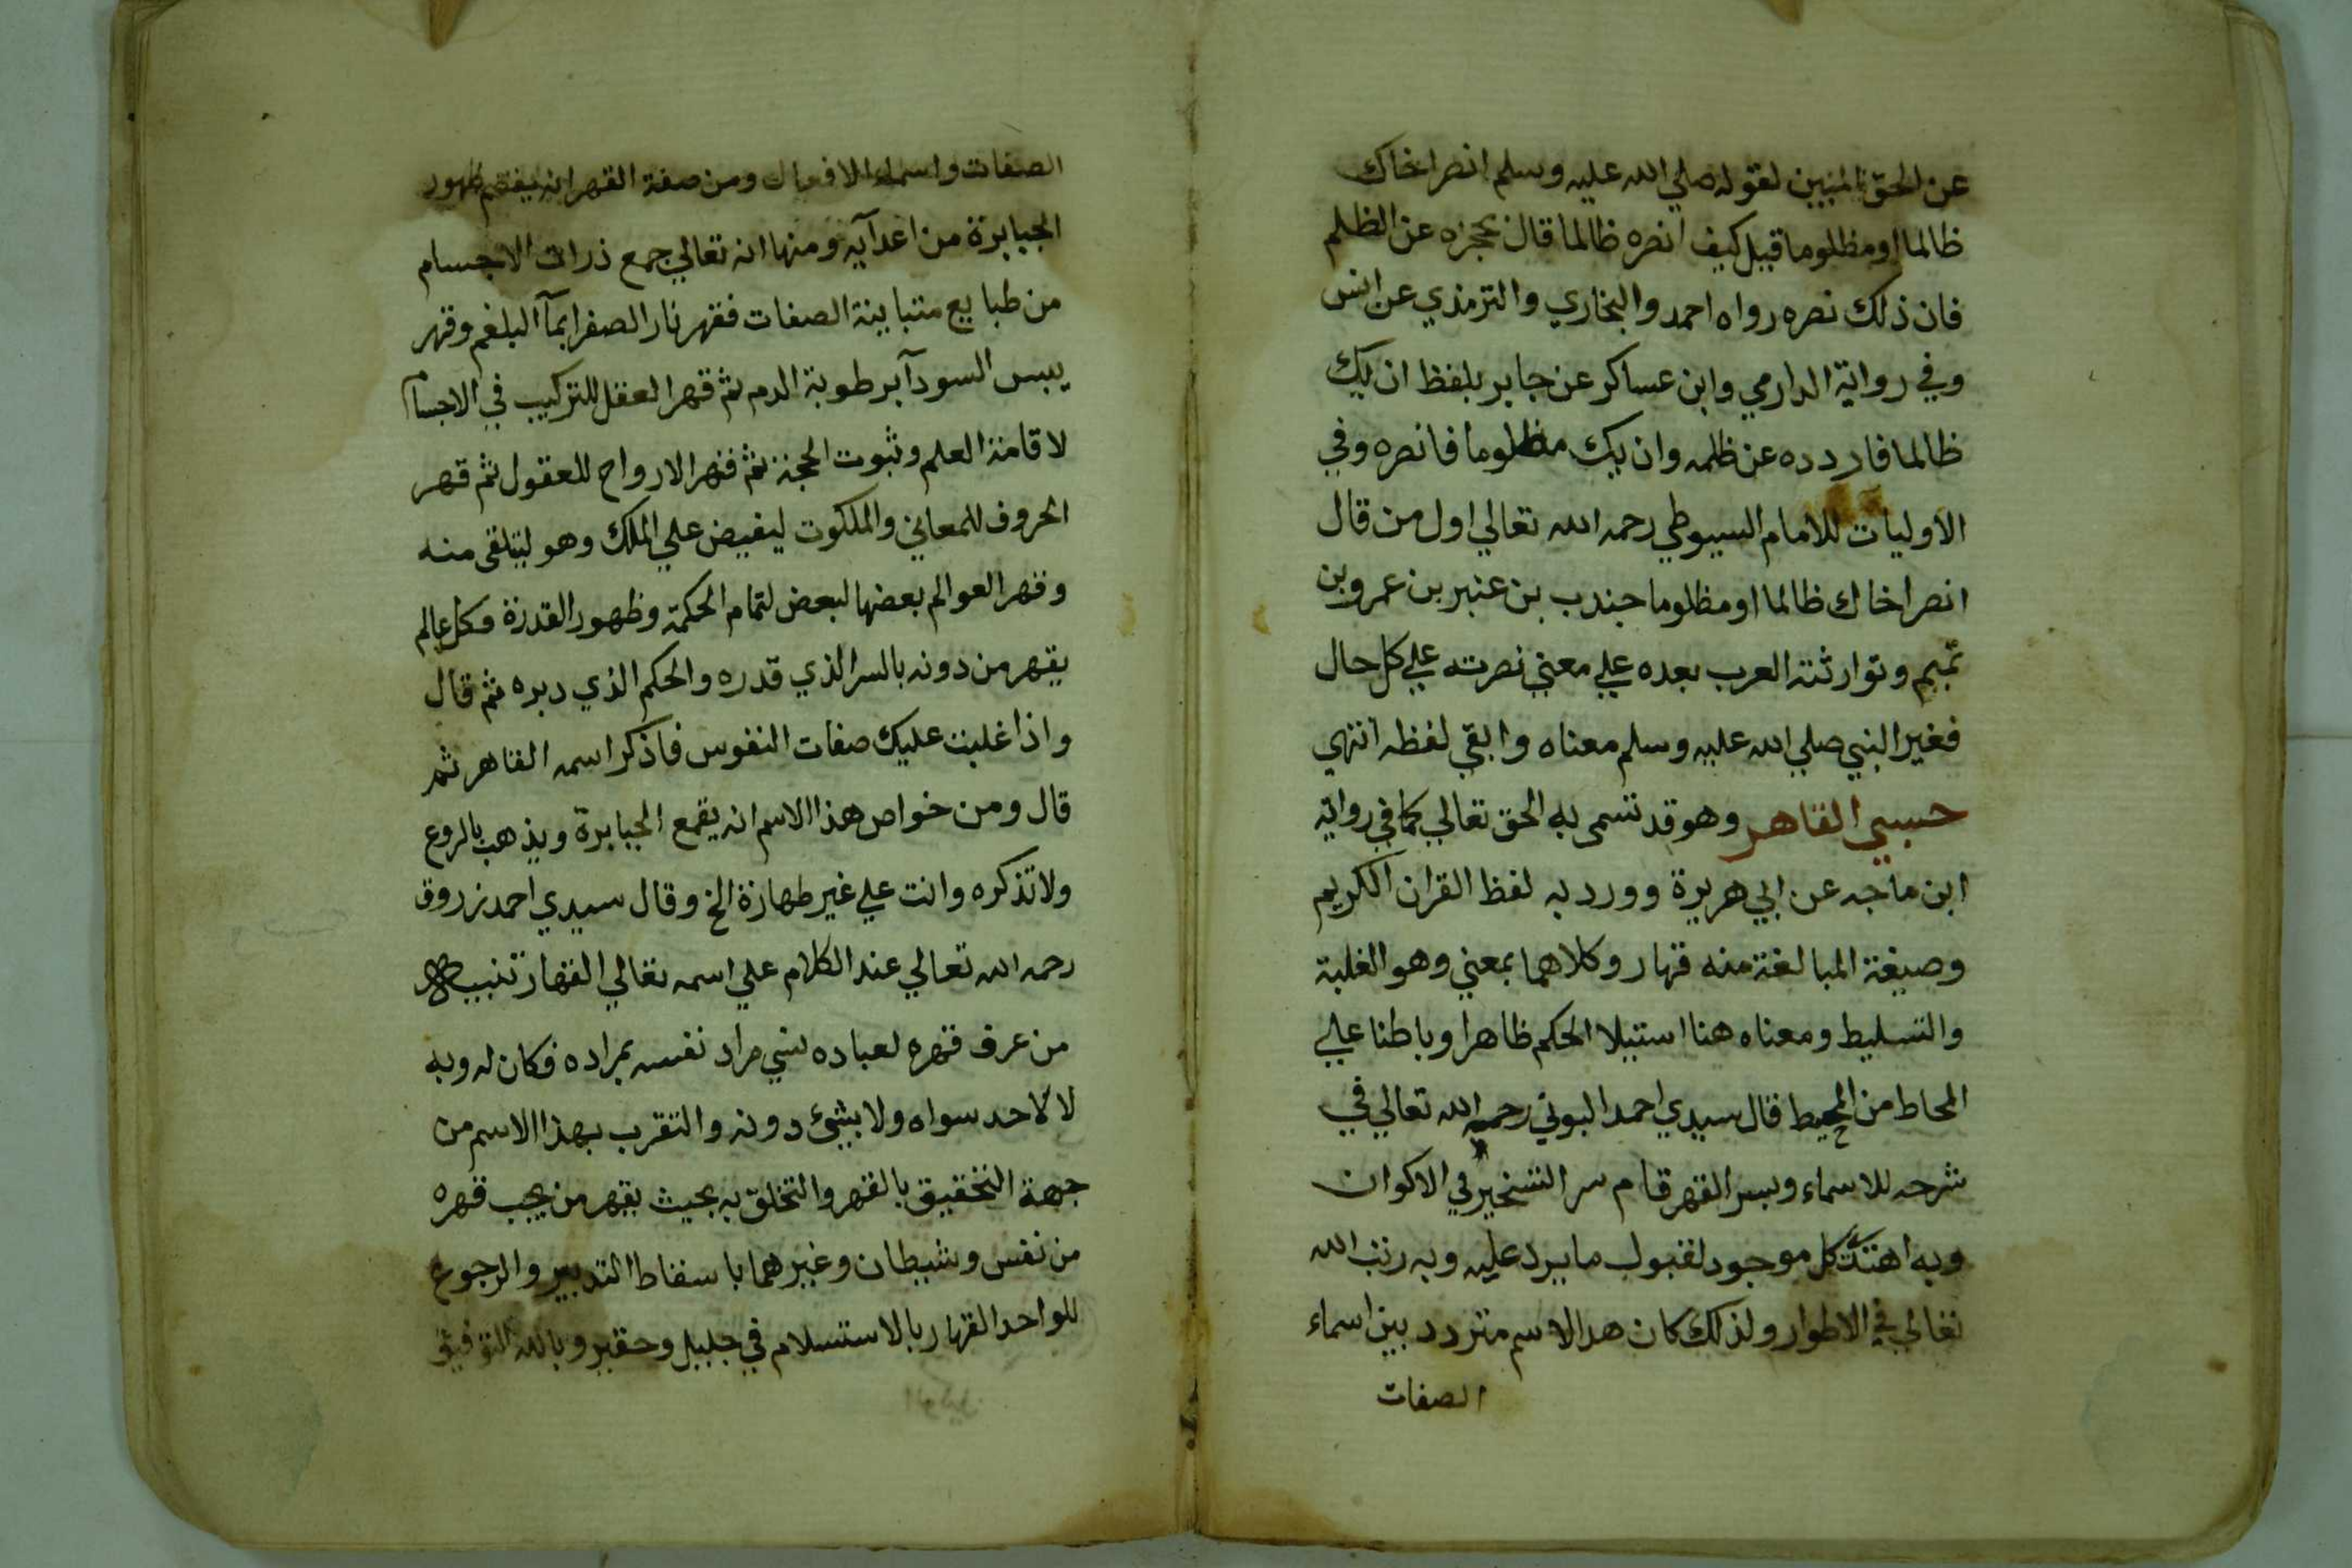 عن الحق المبين لقوله صلي الله عليه وسلم انصر اخاك
ظالما او مظلوما قيل كيف انصره ظالما قال تحجزه عن الظلم
فان ذلك نصره رواه احمد والبخاري والترمذي عن انس
وفي رواية الدارمي وابن عساكر عن جابر بلفظ ان يك
ظالما فاردده عن ظلمه وان يك مظلوما فانصره وفي
الاوليات للامام السيوطي رحمه الله تعالي اول من قال
انصر اخاك ظالما او مظلوما جندب بن عنبر بن عمرو بن
تميم وتوارثته العرب بعده علي معني نصرته علي كل حال
فغير النبي صلي الله عليه وسلم معناه وابقي لفظه انتهي
حسبي القاهر وهو قد تسمى به الحق تعالي كما في رواية
ابن ماجه عن ابي هريرة وورد به لفظ القران الكريم
وصيغة المبالغة منه قهار وكلاهما بمعني وهو الغلبة
والتسليط ومعناه هنا استيلا الحكم ظاهرا وباطنا علي
المحاط من المحيط قال سيدي احمد البوني رحمه الله تعالي في
شرحه للاسماء وبسر القهر قام سر التسخير في الاكوان
وبه اهتدت كل موجود لقبول ما يرد عليه وبه رتب الله
تعالي في الاطوار ولذلك كان هدا الاسم متردد بين اسماء
الصفات
الصفات واسماء الافعال ومن صفة القهر انه يقصم ظهور
الجبابرة من اعدآيه ومنها انه تعالي جمع ذرات الاجسام
من طبايع متباينة الصفات فقهر نار الصفرا بمآ البلغم وقهر
يبس السودآ برطوبة الدم ثم قهر العقل للتركيب في الاجسام
لاقامة العلم وثبوت الحجة ثم قهر الارواح للعقول ثم قهر
الحروف للمعاني والملكوت ليفيض علي الملك وهو ليتلقى منه
وقهر العوالم بعضها لبعض لتمام الحكمة وظهور القدرة فكل عالم
يقهر من دونه بالسر الذي قدره والحكم الذي دبره ثم قال
واذا غلبت عليك صفات النفوس فاذكر اسمه القاهر ثم
قال ومن خواص هذا الاسم انه يقمع الجبابرة ويذهب بالروع
ولا تذكره وانت علي غير طهارة الخ وقال سيدي احمد زروق
رحمه الله تعالي عند الكلام علي اسمه تعالي القهار تنبيه
من عرف قهره لعباده نسي مراد نفسه بمراده فكان له وبه
لا لاحد سواه ولا بشئ دونه والتقرب بهذا الاسم من
جهة التحقيق بالقهر والتخلق به بحيث يقهر من يجب قهره
من نفس وشيطان وغيرهما باسقاط التدبير والرجوع
للواحد القهار بالاستسلام في جليل وحقير وبالله التوفيق